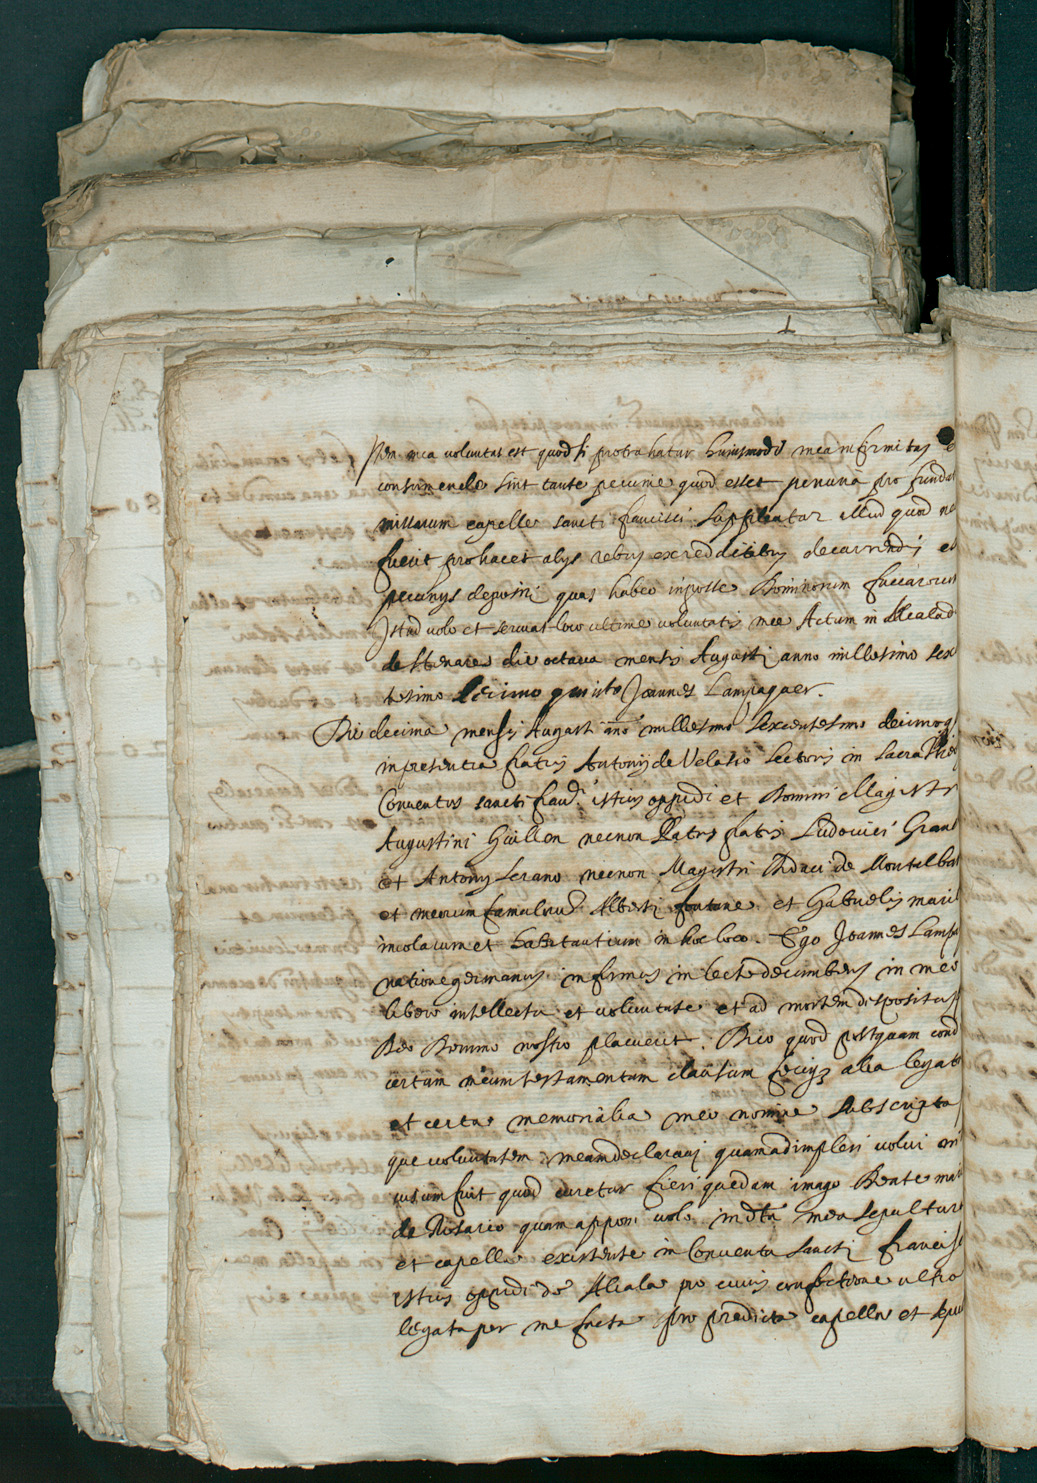 Item mea voluntas est quod si protrahatur huiusmodi mea infirmitas e
consumende sint tante pecunie quod esset penuria pro fundat
missarum capelle sancti francisci suppleatur illud quod ne
fuerit pro hac et alys rebus ex redditibus decurrendis et
pecunys depositi quas habeo in posse Dominorum fuccarorum
Istud volo et servat loco ultime voluntatis mee Actum in Alcalad
de Henares die octava mensis Augusti anno millesimo sex
tesimo decimo quinto Joannes Lamparter.
Die decima mensis Augusti anno millesimo sexcentesimo decimoq
in presentia fratris Antonij de Velasco Lectoris in sacra
Conventus sancti istius oppidi et Domini Magistri
Augustini Guillen necnon Patris fratris Ludovici Grand
et Antony Serano necnon Magistri Didaci de Montalba
et meorum famulorum Alberti fontane et Gabrielis mari
incolarum et habitantium in hoc loco. Ego Joannes Lampa
natione germanus infirmus in lecto decumbens in meo
libero intellectu et voluntate et ad mortem dispositus
Deo Domino nostro placuerit. Dico quod postquam cond
certum meum testamentum clausum alia legat
et certa memorialia meo nomine subscripta
que voluntatem meam declaravi quam adimpleri volui
visum fuit quod curetur fieri quedam imago Beate mar
de Rosario quam apponi volo in dta mea sepultura
et capella existente in Conventu sancti francis
istius oppidi de Alcala pro cuius confectione ultra
legata per me facta pro predicta capella et sepu